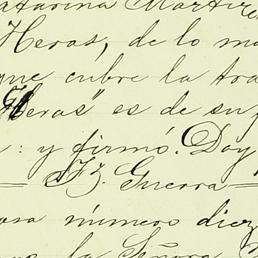 Catarina Martine
Heras, de lo ma
que cubre la tra
"Heras" es de su p
: y firmó. Doy
Fz. Guerra
asa número diez
la Señora